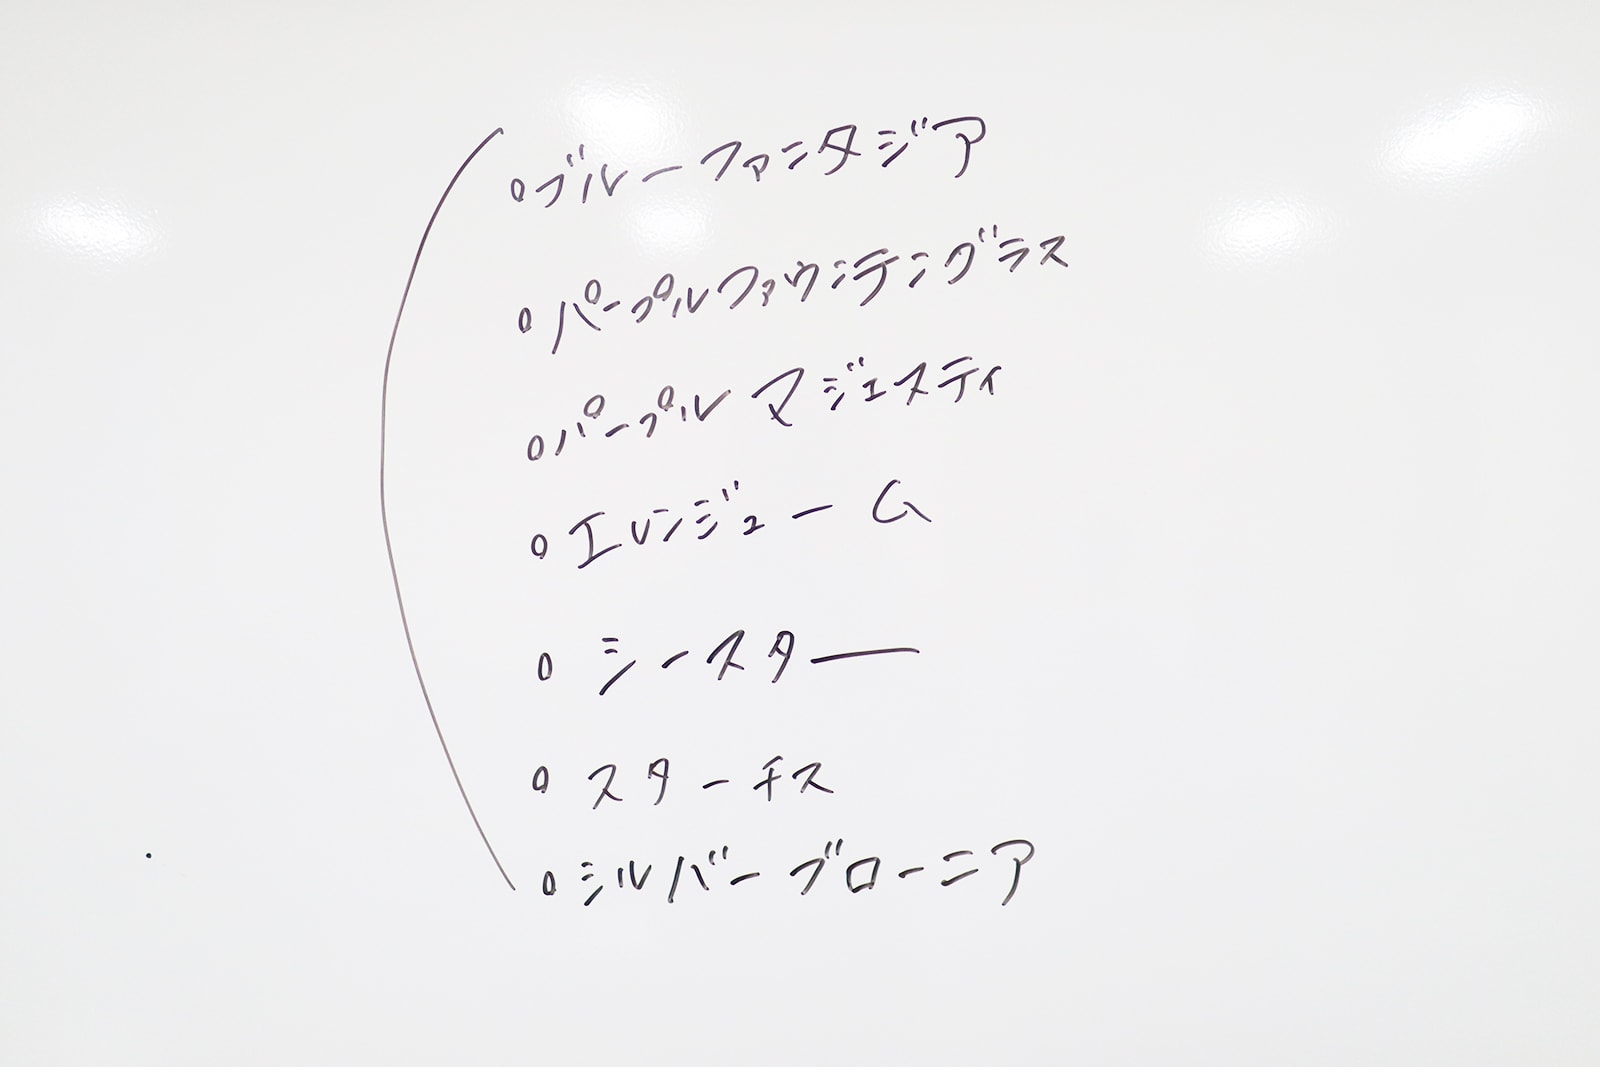 ○ブルーファンタジア
○パープルファウンテングラス
○パープルマジェスティ
○エレンジューム
○シースター
○スターチス
○シルバーブローニア